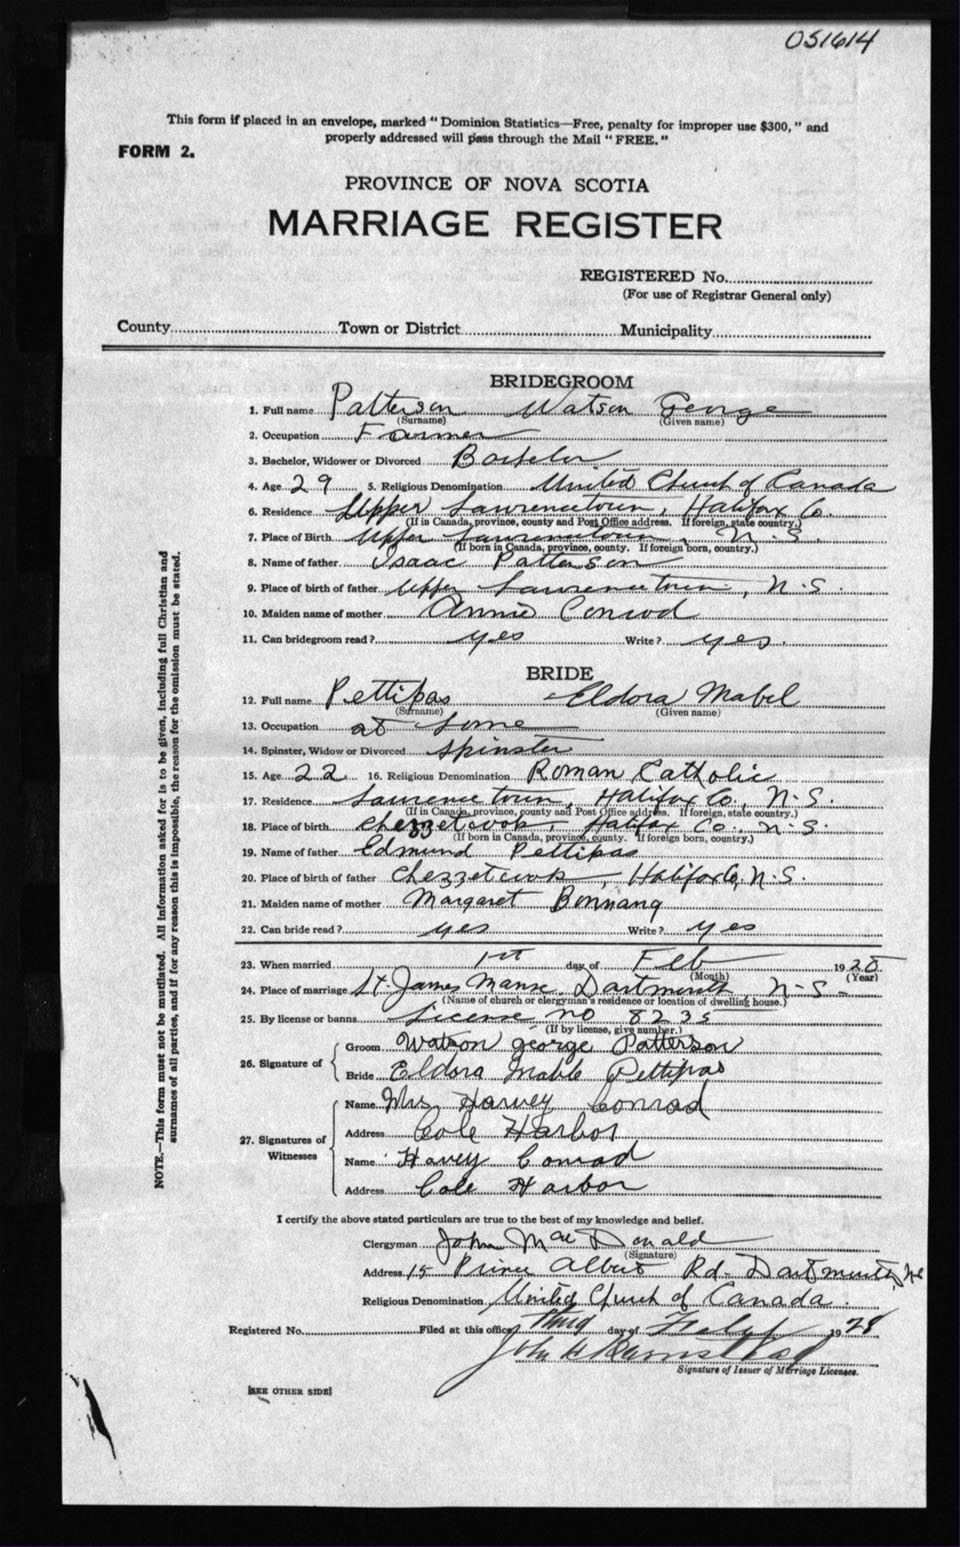 051614
This form if placed in an envelope, marked "Dominion Statistics—Free, penalty for improper use $300," and
properly addressed will pass through the Mail "FREE."
FORM 2.
PROVINCE OF NOVA SCOTIA
MARRIAGE REGISTER
REGISTERED No.
(For use of Registrar General only)
County Town or District Municipality
BRIDEGROOM
1. Full name Patterson Watson George
(Surname) (Given name)
2. Occupation Farmer
3. Bachelor, Widower or Divorced Bachelor
4. Age 29 5. Religious Denomination United Church of Canada
6. Residence Upper Lawrencetown, Halifax Co.
(If in Canada, province, county and Post Office address. If foreign, state country.)
7. Place of Birth Upper Lawrencetown, N.S.
(If born in Canada, province, county. If foreign born, country.)
8. Name of father Isaac Patterson
9. Place of birth of father Upper Lawrencetown, N.S.
10. Maiden name of mother Annie Conrod
11. Can bridegroom read? yes Write? yes.
BRIDE
12. Full name Pettipas Eldora Mabel
(Surname) (Given name)
13. Occupation at home
14. Spinster, Widow or Divorced Spinster
15. Age 22 16. Religious Denomination Roman Catholic
17. Residence Lawrencetown, Halifax Co., N.S.
(If in Canada, province, county and Post Office address. If foreign, state country.)
18. Place of birth Chezzetcook, Halifax Co., N.S.
(If born in Canada, province, county. If foreign born, country.)
19. Name of father Edmund Pettipas
20. Place of birth of father Chezzetcook, Halifax Co, N.S.
21. Maiden name of mother Margaret Bonnang
22. Can bride read? yes Write? yes
23. When married 1st day of Feb 1928
(Month) (Year)
24. Place of marriage St. James Manse, Dartmouth, N-S-
(Name of church or clergyman's residence or location of dwelling house.)
25. By license or banns License no 8235
(If by license, give number.)
26. Signature of Groom Watson george Patterson
Bride Eldora Mable Pettipas
27. Signatures of Witnesses
Name Mrs Harvey Conrad
Address Cole Harbor
Name Havey Conrad
Address Cole Harbor
I certify the above stated particulars are true to the best of my knowledge and belief.
Clergyman John MacDonald
(Signature)
Address 15 Prince Albert Rd. Dartmouth, N.S
Religious Denomination United Church of Canada.
Registered No. Filed at this office third day of 1928
Signature of Issuer of Marriage Licenses.
[SEE OTHER SIDE]
NOTE.—This form must not be mutilated. All information asked for is to be given, including full Christian and
surnames of all parties, and if for any reason this is impossible, the reason for the omission must be stated.